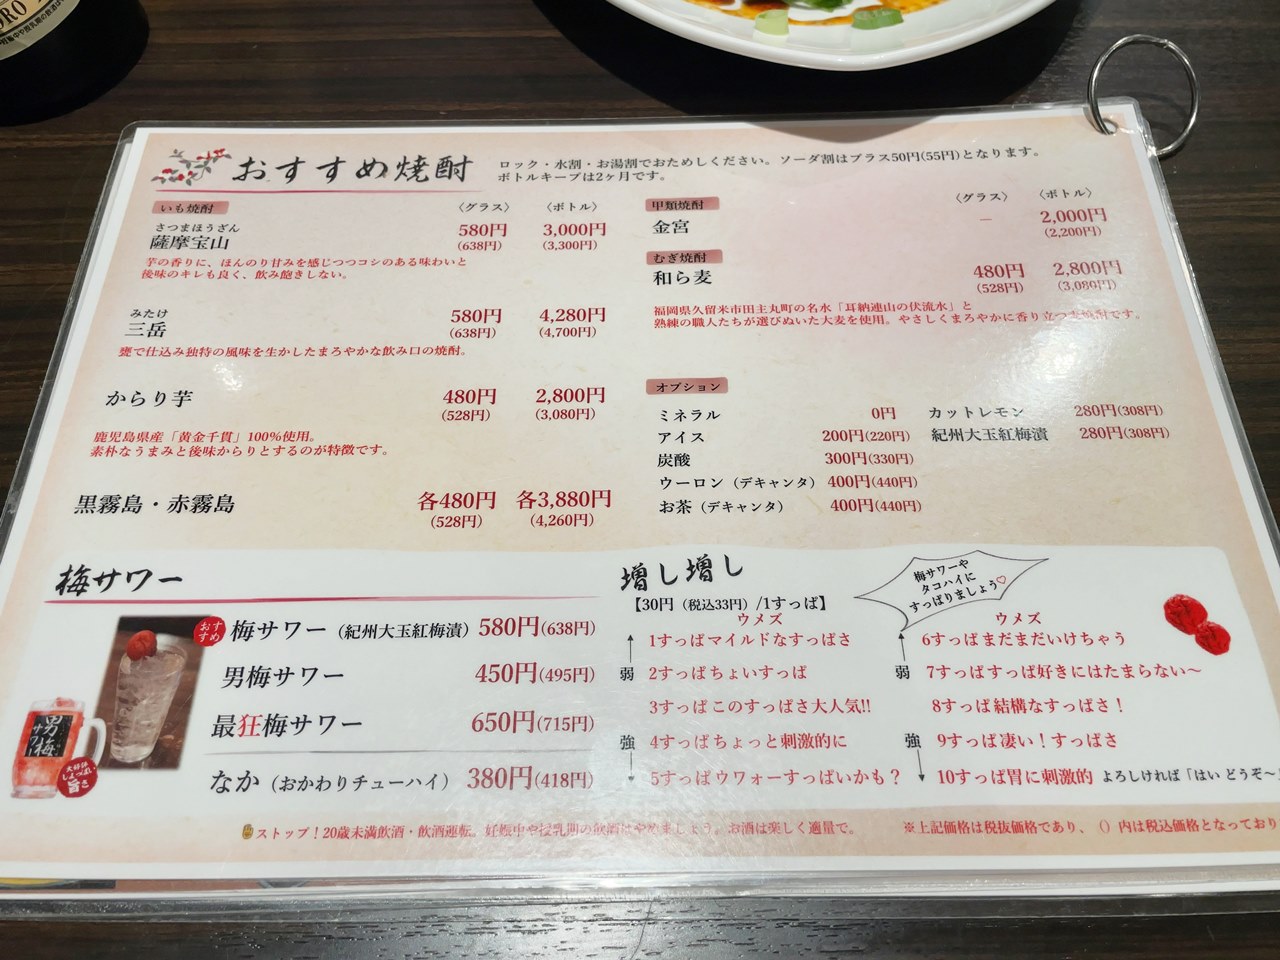 おすすめ焼酎
ロック・水割・お湯割でおためしください。ソーダ割はプラス50円(55円)となります。
ボトルキープは2ヶ月です。
いも焼酎 〈グラス〉 〈ボトル〉
さつまほうざん
薩摩宝山 580円 3,000円
(638円) (3,300円)
芋の香りに、ほんのり甘みを感じつつコシのある味わいと
後味のキレも良く、飲み飽きしない。
みたけ
三岳 580円 4,280円
(638円) (4,700円)
甕で仕込み独特の風味を生かしたまろやかな飲み口の焼酎。
からり芋 480円 2,800円
(528円) (3,080円)
鹿児島県産「黄金千貫」100%使用。
素朴なうまみと後味からりとするのが特徴です。
黒霧島・赤霧島 各480円 各3,880円
(528円) (4,260円)
甲類焼酎 〈グラス〉 〈ボトル〉
金宮 − 2,000円
(2,200円)
むぎ焼酎
和ら麦 480円 2,800円
(528円) (3,080円)
福岡県久留米市田主丸町の名水「耳納連山の伏流水」と
熟練の職人たちが選びぬいた大麦を使用。やさしくまろやかに香り立つ麦焼酎です。
オプション
ミネラル 0円
アイス 200円(220円)
炭酸 300円(330円)
ウーロン（デキャンタ） 400円(440円)
お茶（デキャンタ） 400円(440円)
カットレモン 280円(308円)
紀州大玉紅梅漬 280円(308円)
梅サワー
おす
すめ
梅サワー（紀州大玉紅梅漬）580円(638円)
男梅サワー 450円(495円)
最狂梅サワー 650円(715円)
なか（おかわりチューハイ） 380円(418円)
男梅
サワー
旨さ
増し増し
【30円（税込33円）/1すっぱ】
梅サワーや
タコハイに
すっぱりましょう♡
ウメズ
弱
強
1すっぱマイルドなすっぱさ
2すっぱちょいすっぱ
3すっぱこのすっぱさ大人気!!
4すっぱちょっと刺激的に
5すっぱウワォーすっぱいかも？
ウメズ
弱
強
6すっぱまだまだいけちゃう
7すっぱすっぱ好きにはたまらない〜
8すっぱ結構なすっぱさ！
9すっぱ凄い！すっぱさ
10すっぱ胃に刺激的 よろしければ「はい どうぞ〜
ストップ！20歳未満飲酒・飲酒運転。妊娠中や授乳期の飲酒はやめましょう。お酒は楽しく適量で。
※上記価格は税抜価格であり、（）内は税込価格となっており